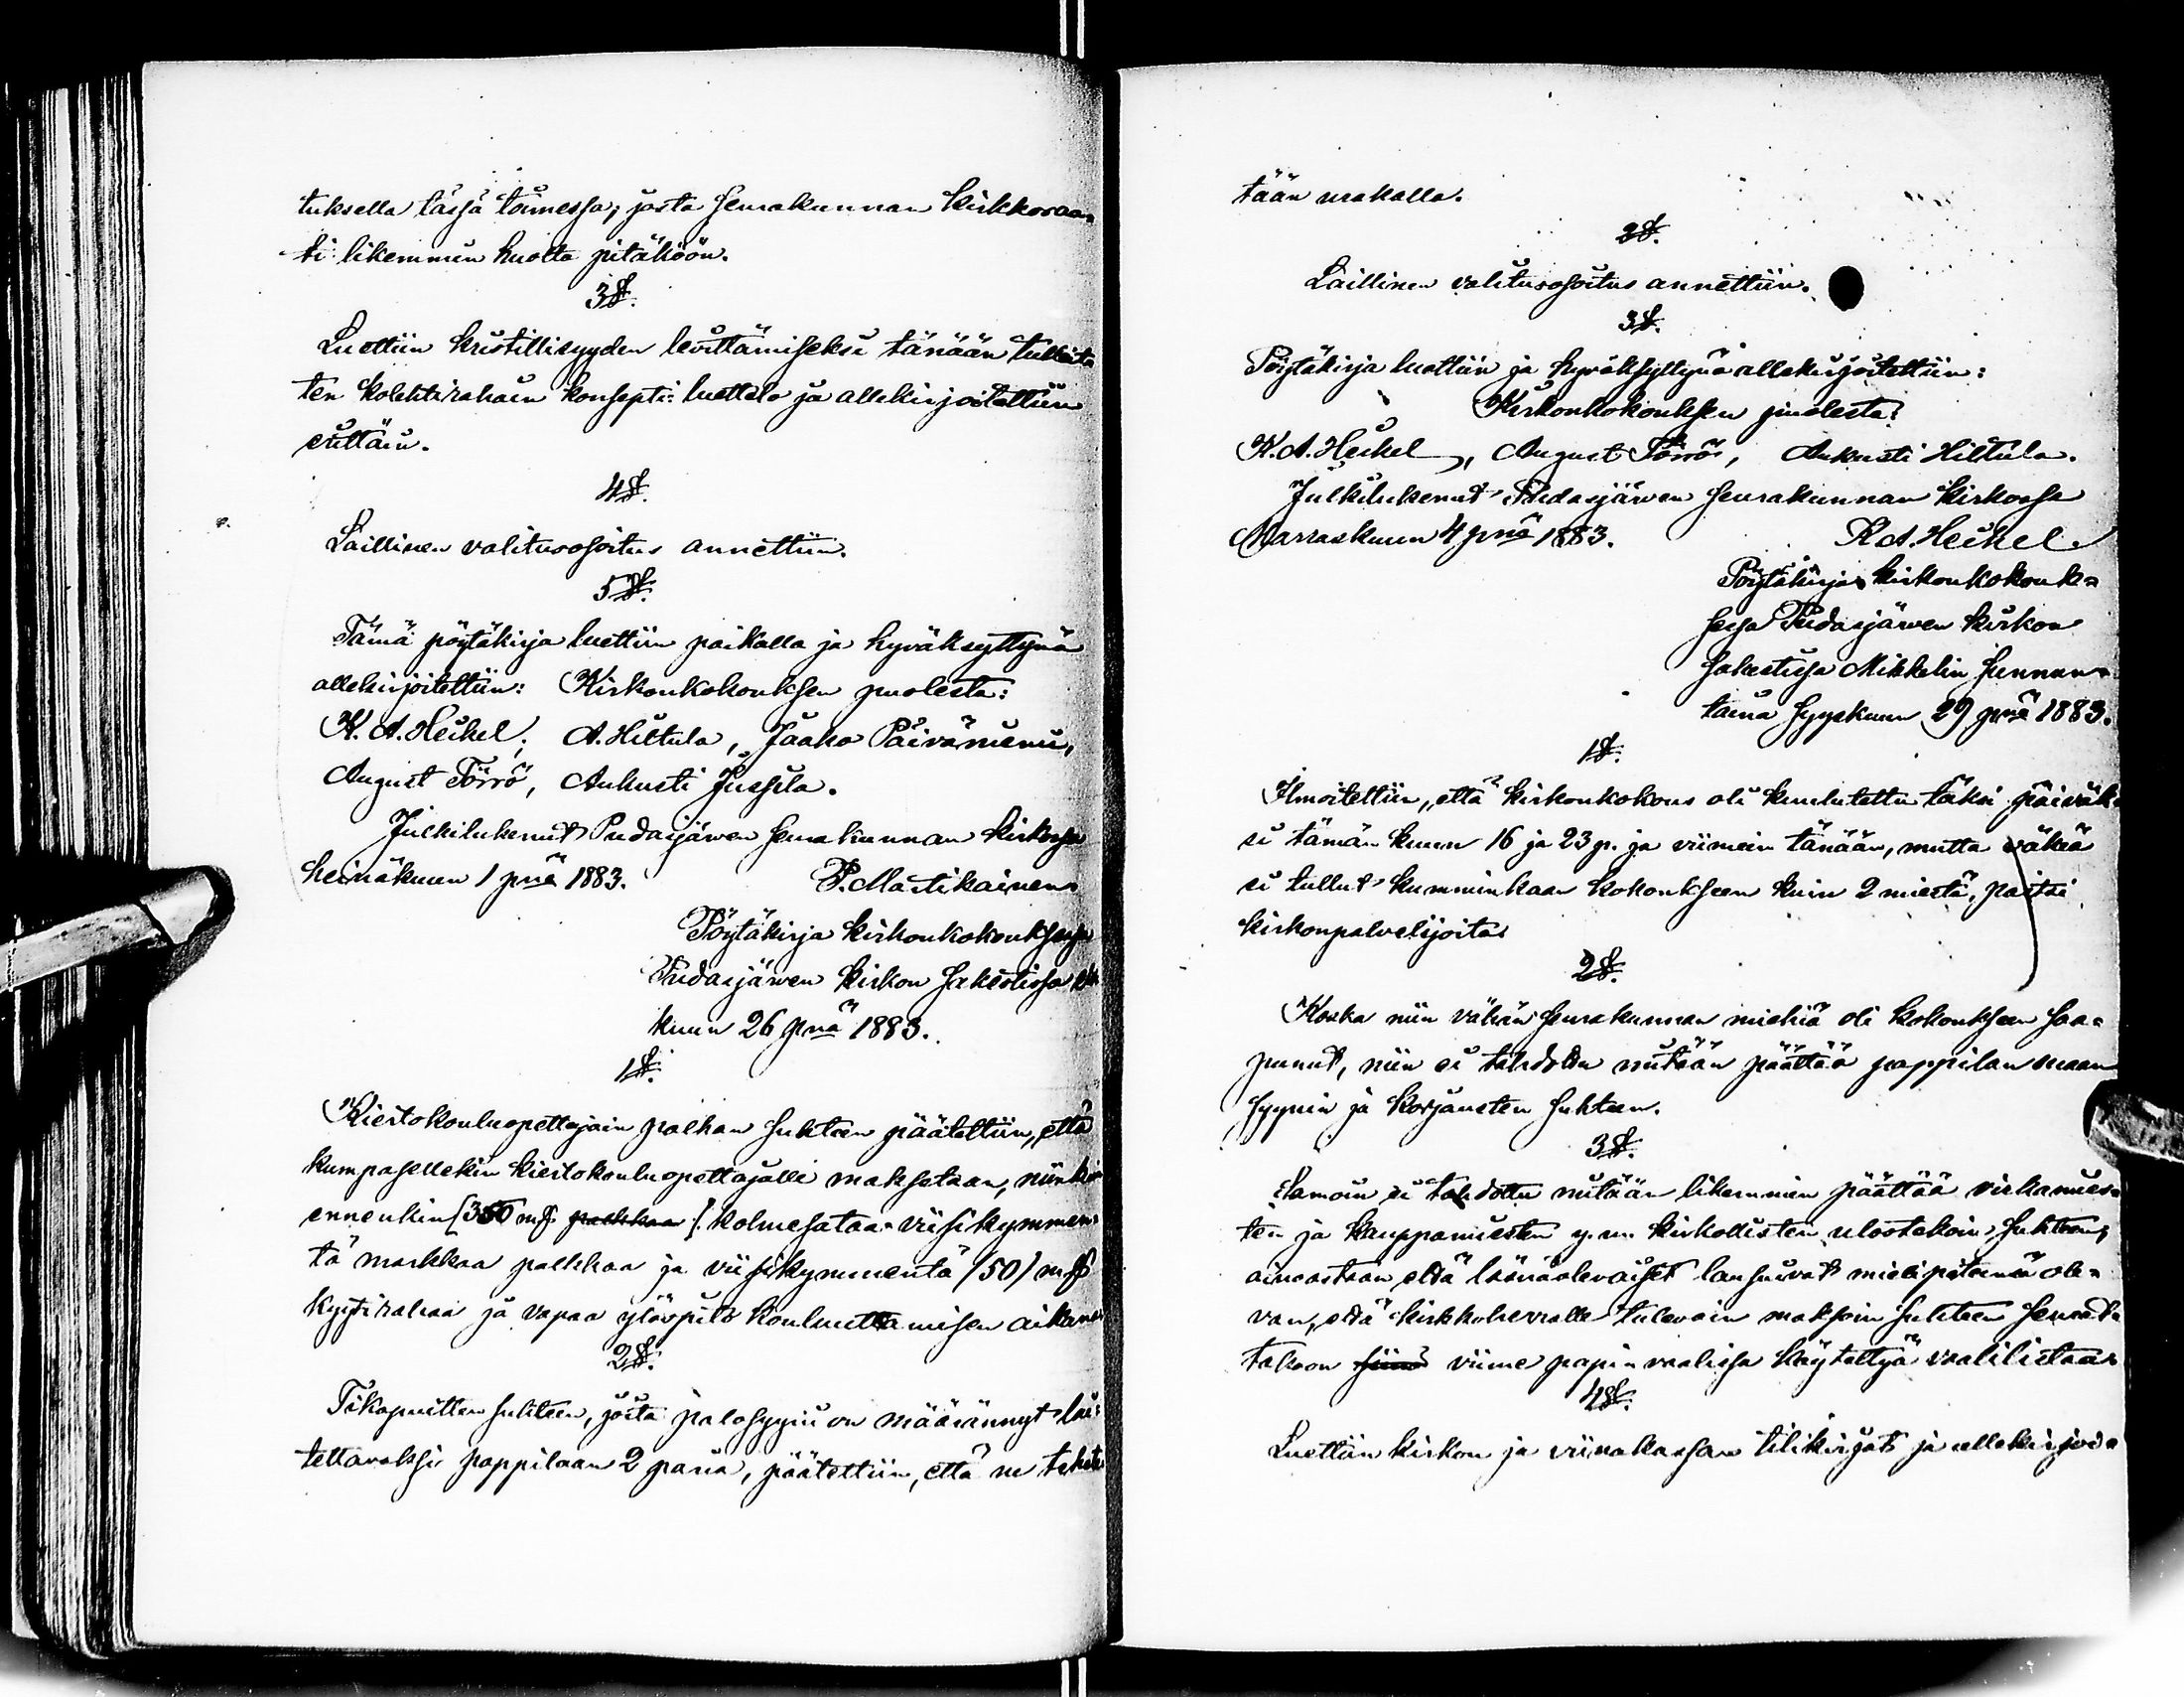 tuksella tässä toimessa; josta seurakunnan kirkkoraa-
ti likemmin huolta pitäköön.
3 §.
Luettiin kristillisyyden levittämiseksi tänään
ten kolehtirahain konsepti-luettelo ja allekirjoitettiin
erittäin.
4 §.
Laillinen valitusosoitus annettiin.
5 §.
Tämä pöytäkirja luettiin paikalla ja hyväksyttynä
allekirjoitettiin: Kirkonkokouksen puolesta:
K. A. Heikel; A. Hiltula, Jaako Päiväniemi,
August Törrö, Aukusti Jussila.
Julkilukenut Pudasjärwen seurakunnan kirkossa
heinäkuun 1 pnä 1883. P. Martikainen
Pöytäkirja kirkonkokouksessa
Pudasjärwen kirkon sakestissa
kuun 26 pnä 1883.
1 §.
Kiertokouluopettajain palkan suhteen päätettiin, että
kumpasellekin kiertokouluopettajalle maksetaan, niinkin
ennenkin [350 mf. palkkaa]. kolmesataa viisikymmen-
tä markkaa palkkaa ja viisikymmentä (50) mf
kyytirahaa ja vapaa ylöspito kouluuttamisen aikana
2 §.
Tikapuitten suhteen, joita palosyyni on määrännyt lai-
tettavaksi pappilaan 2 paria, päätettiin, että ne tehdä
tään urakalla.
2 §.
Laillinen valitusosoitus annettiin.
3 §.
Pöytäkirja luettiin ja hyväksyttynä allekirjoitettiin:
Kirkonkokouksen puolesta:
K. A. Heikel, August Törrö, Aukusti Hiltula.
Julkilukenut Pudasjärwen seurakunnan kirkossa
Marraskuun 4 pnä 1883. K. A. Heikel.
Pöytäkirja kirkonkokouk-
sessa Pudasjärwen kirkon
sakestissa Mikkelin sunnun-
taina syyskuun 29 pnä 1883.
1 §.
Ilmoitettiin, että kirkonkokous oli kuulutettu täksi päiväk-
si tämän kuun 16 ja 23 p. ja viimein tänään, mutta väkeä
ei tullut kumminkaan kokoukseen kuin 2 miestä, paitsi
kirkonpalvelijoita
2 §.
Koska niin vähän seurakunnan miehiä oli kokoukseen saa-
punut, niin ei tahdottu mitään päättää pappilan maan
syynin ja korjausten suhteen.
3 §.
Samoin ei tahdottu mitään likemmin päättää virkamies-
ten ja kauppamiesten y.m. kirkollisten ulostekoin suhteen,
ainoastaan että läsnäolevaiset lausuivat mielipiteensä ole-
van, että kirkkoherralle tulevain maksoin suhteen seurat-
takoon siinä viime papin vaalissa käytettyä vaalilistaa
4 §.
Luettiin kirkon ja viinakassan tilikirjat ja allekirjoi-